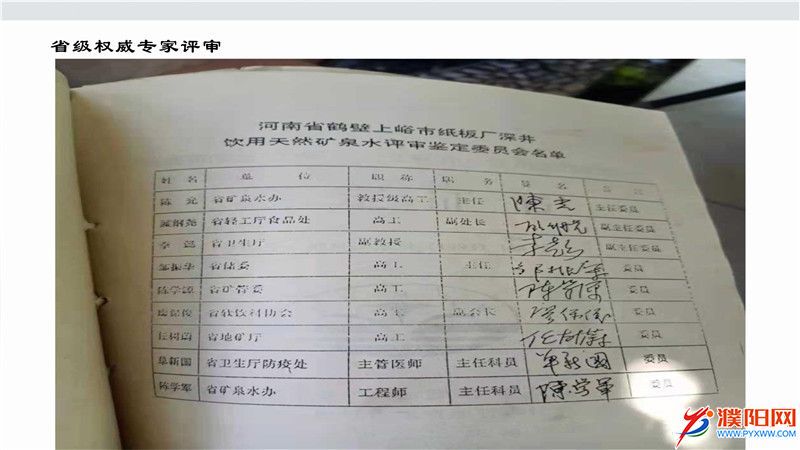 省级权威专家评审
河南省鹤壁上峪市纸板厂深井
饮用天然矿泉水评审鉴定委员会名单
姓 名 单 位 职 称 职 务 签 名 备 注
陈 光 省矿泉水办 教授级高工 主任 陳光 主任委员
省轻工厅食品处 高工 副处长 副主任委员
省卫生厅 副教授 副主任委员
邹振华 省储委 高工 主任 委员
陈学 省矿管委 高工 委员
省软饮料协会 高工 副会长 委员
任树 省地矿厅 高工 委员
单新国 省卫生厅防疫处 主管医师 主任科员 单新国 委员
陈学军 省矿泉水办 工程师 主任科员 陳学军 委员
濮阳网
www.pyxww.com